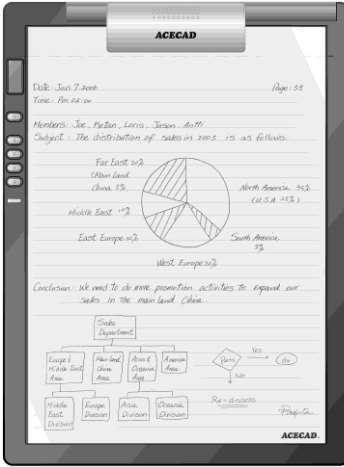 ACECAD
Date: Jan 7. 2004
Page: 38
Time: Pm 02:00
Members: Joe, Ketan, Loris, Jason, Antti
Subject: The distribution of sales in 2003 is as follows.
Far East 20%
(Main Land
China 5%)
North America 35%
(U.S.A. 25%)
Middle East 10%
East Europe 10%
South America
5%
West Europe 20%
Conclusion: We need to do more promotion activities to expand our
sales in the main land China.
Sales
Department
Europe &
Middle East
Area
Main land
China
Area
Asia &
Oceania
Area
America
Area
Pass
Yes
Go
No
Middle
East
Division
Europe
Division
Asia
Division
Oceania
Division
Re-assess
ACECAD.